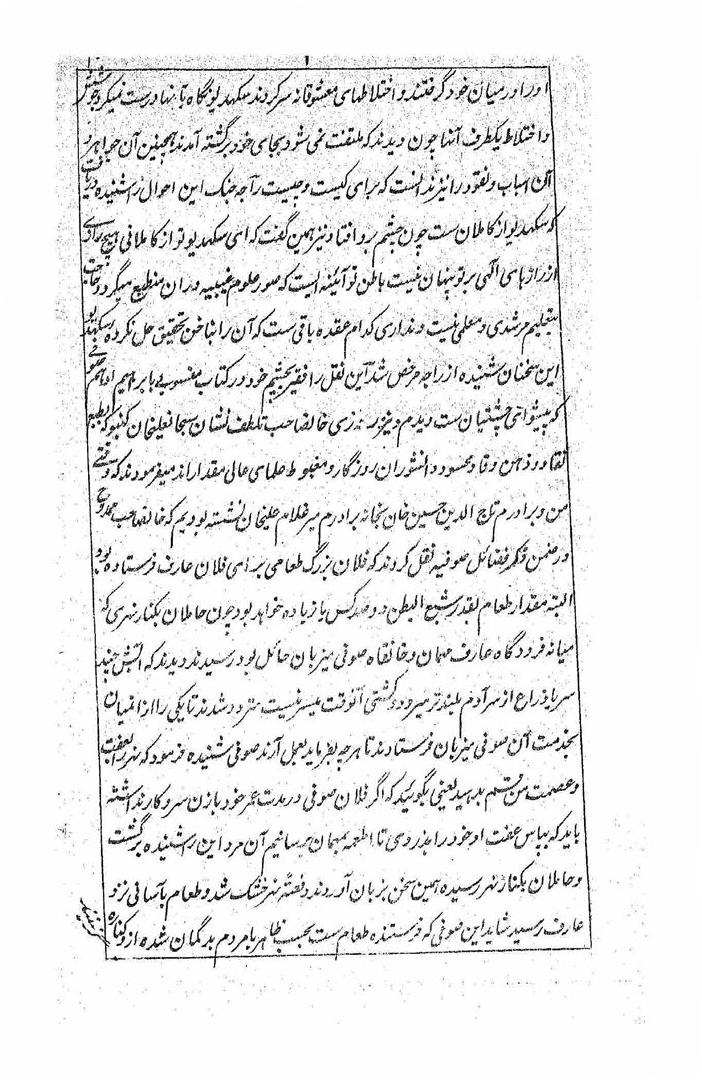 او را در میان خود گرفتند و اختلاطهای معشوقانه سر کردند سکهدیو نگاه بآنها درست نمیکرد جوشش
و اختلاط یکطرف آنها چون دیدند که ملتفت نمی شود بجای خود برگشته آمدند همچنین آن جواهر و
آن اسباب و نقود را نیز ندانست که برای کیست و چیست راجه جنک این احوال را شنیده دریافت
که سکهدیو از کاملان ست چون چشم بر و افتاد نیز همین گفت که ای سکهدیو تو از کاملانی هیچ
از رازهای الهی بر تو پنهان نیست باطن تو آئینه ایست که صور علوم غیبیه در ان منطبع میگردد و حاجت
بتعلیم مرشدی و معلمی نیست و نداری کدام عقده باقی ست که آن را بناخن تحقیق حل نکرده سکهدیو
این سخنان شنیده از راجه مرخص شد این نقل را فقیر بچشم خود در کتاب منسوب بابراهیم ادهم
که پیشوای چشتیان ست دیدم و نیز روزی خانصاحب تلطف نشان سبحانعلیخان کنبو که
نقاد و ذهن وقاد محسود دانشوران روزگار و مغبوط علمای عالی مقدار اند میفرمودند که وقتی
من و برادرم تاج الدین حسین خان بخانه برادرم میر غلام علیخان نشسته بودیم که خانصاحب ممدوح
در ضمن ذکر فضائل صوفیه نقل کردند که فلان بزرگ طعامی برای فلان عارف فرستاده بود
البته مقدار طعام بقدر شبع البطن دو صد کس یا زیاده خواهد بود چون حاملان بکنار نهری که
میانه فرودگاه عارف مهمان و خانقاه صوفی میزبان حائل بود رسیدند دیدند که آبش چند
سر یا ذراع از سر آدم بلند تر میرود و کشتی آنوقت میسر نیست متردد شدند تا یکی را از انمیان
بخدمت آن صوفی میزبان فرستادند تا هر چه بفرماید بعمل آرند صوفی شنیده فرمود که نهر را بعفت
و عصمت من قسم بدهید یعنی بگوئید که اگر فلان صوفی در مدت عمر خود با زن سروکار نداشته
باید که بپاس عفت او خود را بدزدی تا اطعمه بمهمان برسانیم آن مرد این را شنیده برگشت
و حاملان بکنار نهر رسیده همین سخن بزبان آوردند دفعةً نهر خشک شد و طعام بآسانی نزد
عارف رسید شاید این صوفی که فرستنده طعام ست بحسب ظاهر با مردم بدگمان شده از و کناره